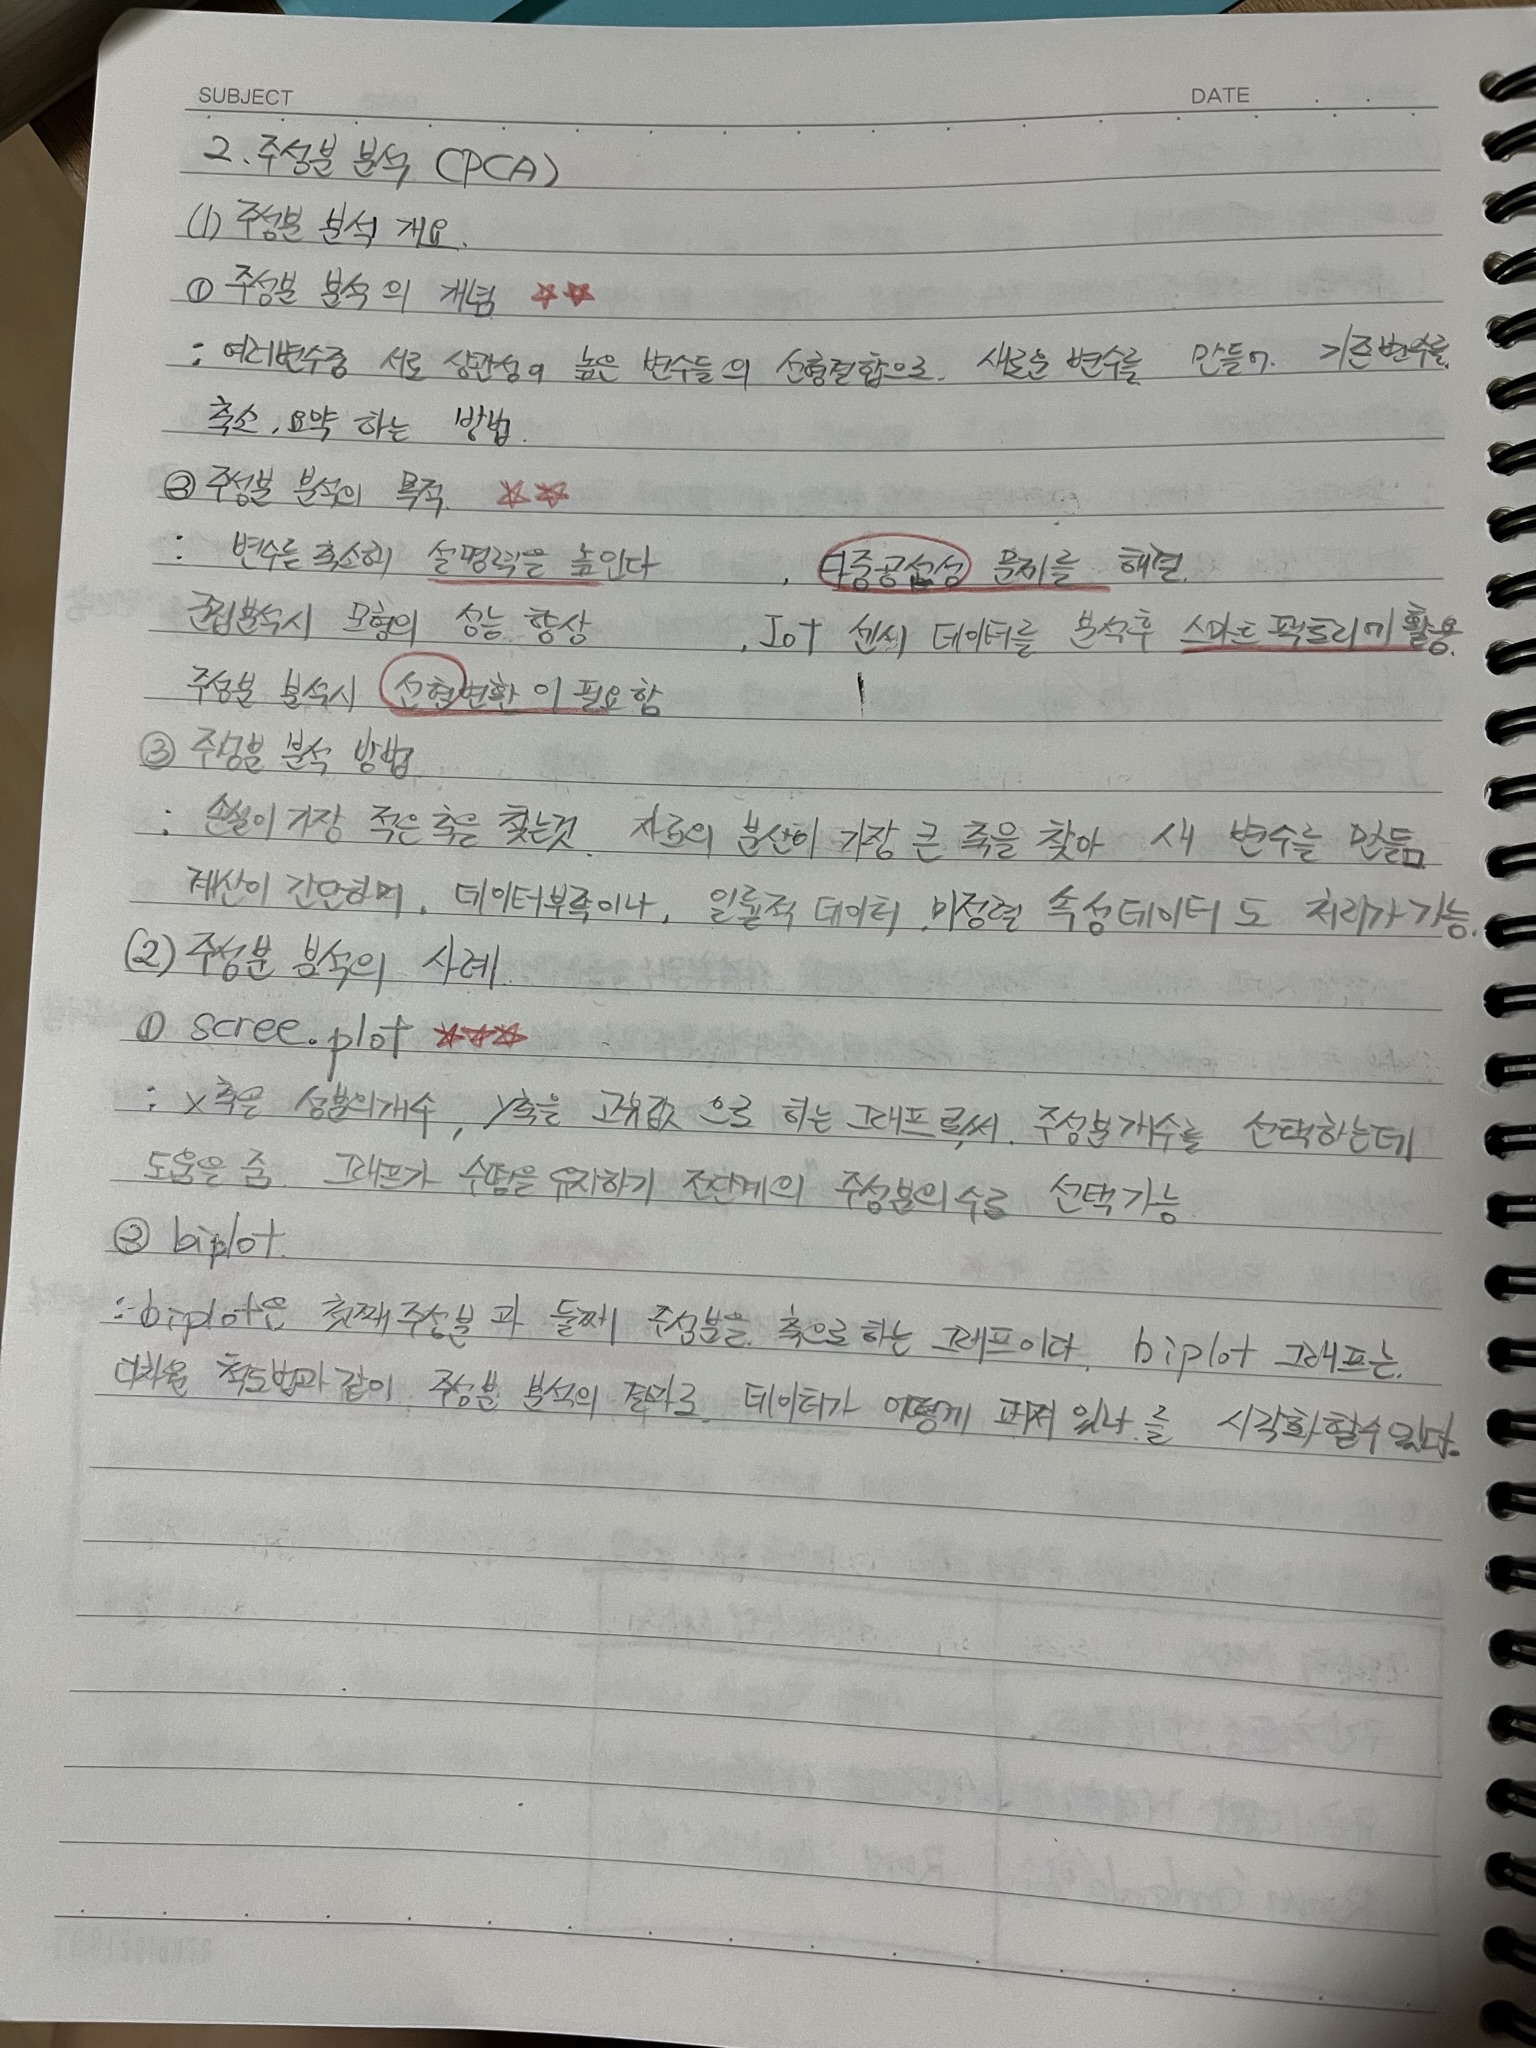 SUBJECT DATE
2. 주성분 분석 (PCA)
(1) 주성분 분석 개요.
① 주성분 분석의 개념 ☆☆
: 여러변수중 서로 상관성이 높은 변수들의 선형결합으로. 새로운 변수를 만들어. 기존변수를
축소, 요약 하는 방법.
② 주성분 분석의 목적. ☆☆
: 변수를 축소해 설명력을 높인다 , 다중공선성 문제를 해결.
군집분석시 모형의 성능 향상 , IoT 센서 데이터를 분석후 스마트 팩토리에 활용.
주성분 분석시 선형변환이 필요함
③ 주성분 분석 방법
: 손실이 가장 적은 축을 찾는것. 자료의 분산이 가장 큰 축을 찾아 새 변수를 만듦
계산이 간단하며, 데이터부족이나, 일률적 데이터, 미정렬 속성데이터도 처리가 가능.
(2) 주성분 분석의 사례
① scree.plot ☆☆☆
: x축은 성분의개수, y축을 고유값 으로 하는 그래프로써. 주성분개수를 선택하는데
도움은 줌. 그래프가 수평을 유지하기 전단계의 주성분의수로 선택가능
② biplot.
: biplot은 첫째주성분과 둘째 주성분을 축으로 하는 그래프이다. biplot 그래프는
다차원 척도법과 같이 주성분 분석의 결과로. 데이터가 어떻게 퍼져 있나.를 시각화할수있다.